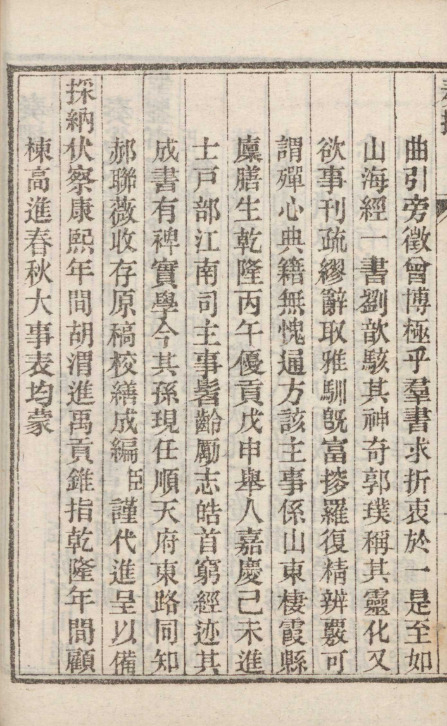 曲引旁徵曾博極乎羣書求折衷於一是至如
山海經一書劉歆駭其神奇郭璞稱其靈化又
欲事刊疏繆辭取雅馴旣富搜羅復精辨覈可
謂殫心典籍無愧通方該主事係山東棲霞縣
廩膳生乾隆丙午優貢戊申舉人嘉慶己未進
士戸部江南司主事髫齡勵志皓首窮經迹其
成書有裨實學今其孫現任順天府東路同知
郝聯薇收存原稿校繕成編臣謹代進呈以備
採納伏察康熙年間胡渭進禹貢錐指乾隆年間顧
棟高進春秋大事表均蒙